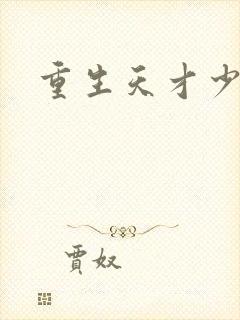 重生天才少
賈奴